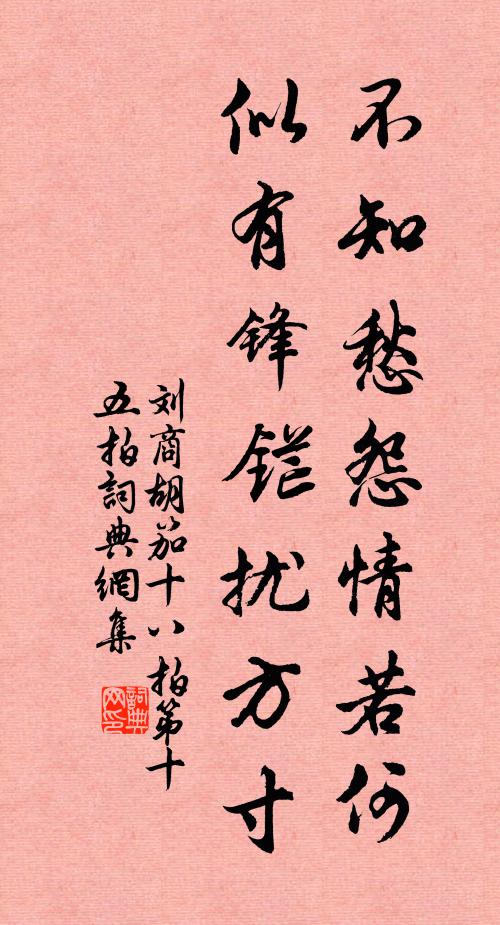 不知愁怨情若何
似有锋铓扰方寸
刘商胡笳十八拍第十
五拍詞典網集
詞典
网印